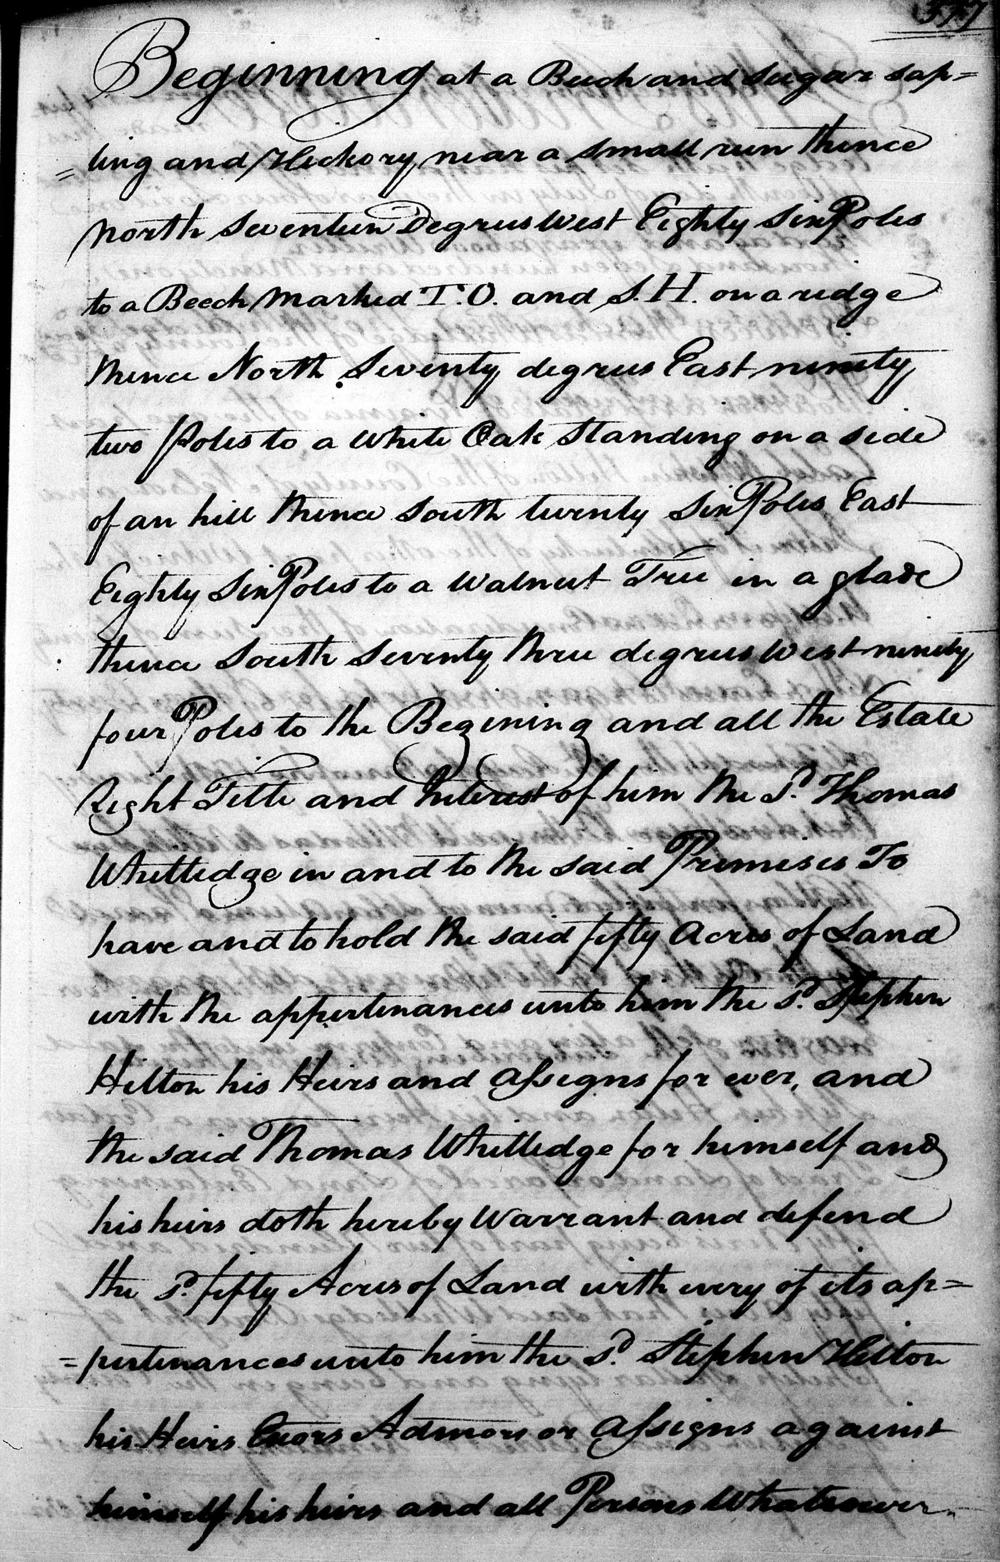 577
Beginning at a Beech and Sugar sap=
=ling and Hickory near a small run thence
north Seventeen Degrees West Eighty Six Poles
to a Beech Marked T.O. and S.H. on a ridge
thence North Seventy degrees East ninety
two Poles to a White Oak Standing on a side
of an hill thence South twenty Six Poles East
Eighty Six Poles to a Walnut Tree in a glade
thence South Seventy three degrees West ninety
four Poles to the Begining and all the Estate
Right Title and Interest of him the Sd. Thomas
Whitledge in and to the said Premises To
have and to hold the said fifty Acres of Land
with the appertenances unto him the Sd. Stephen
Hilton his Heirs and Assigns for ever, and
the said Thomas Whitledge for himself and
his heirs doth hereby Warrant and defend
the Sd. fifty Acres of Land with every of its ap=
=pertenances unto him the Sd. Stephen Hilton
his Heirs Exors Admors or Assigns against
himself his heirs and all Persons Whatsoever